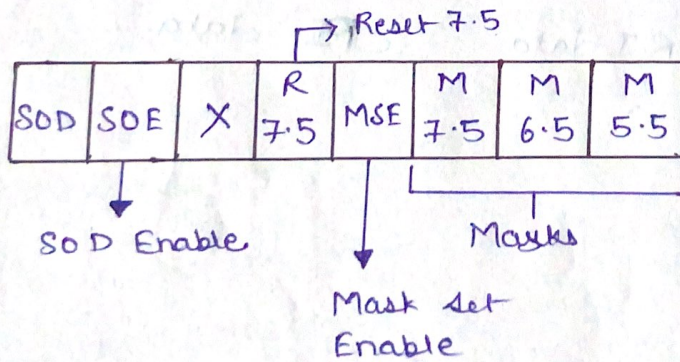 Reset 7.5
SOD SOE X R 7.5 MSE M 7.5 M 6.5 M 5.5
SOD Enable
Masks
Mask set
Enable